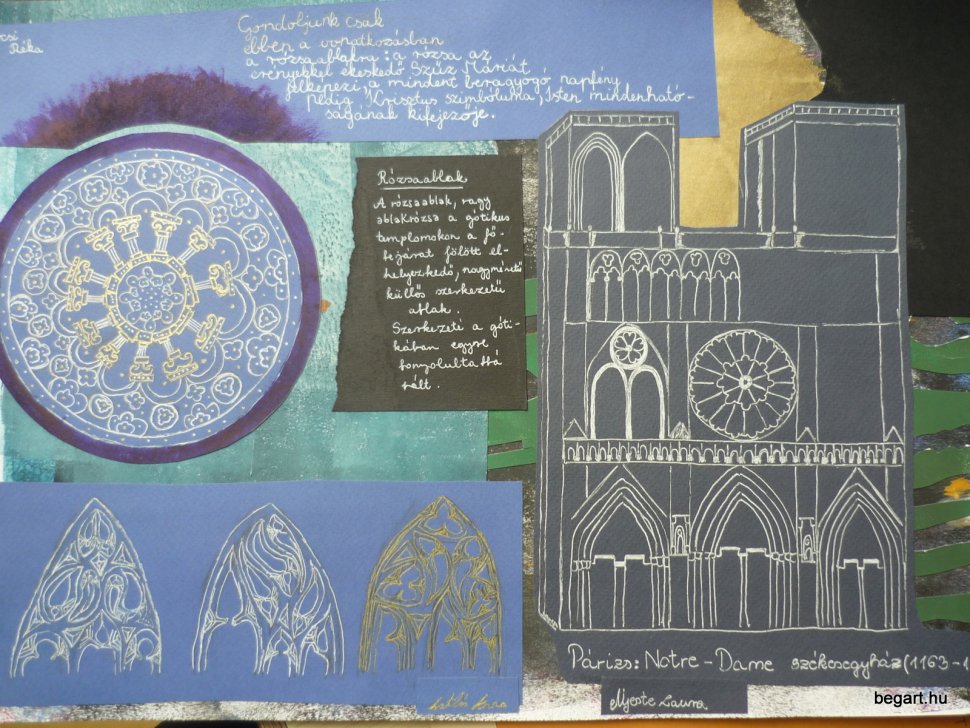 csi
Réka
Gondoljunk csak
ebben a vonatkozásban
a rózsaablakra: a rózsa az
erényekkel ékeskedő Szűz Máriát
jelképezi, a mindent beragyogó napfény
pedig Krisztus szimbóluma, Isten mindenható-
ságának kifejezője.
Rózsaablak
A rózsaablak, vagy
ablakrózsa a gótikus
templomokon a fő-
bejárat fölött el-
helyezkedő, nagyméretű
küllős szerkezetű
ablak.
Szerkezete a góti-
kában egyre
bonyolultabbá
vált.
Párizs: Notre-Dame székesegyház (1163-1
Anna
Njeste Laura
begart.hu